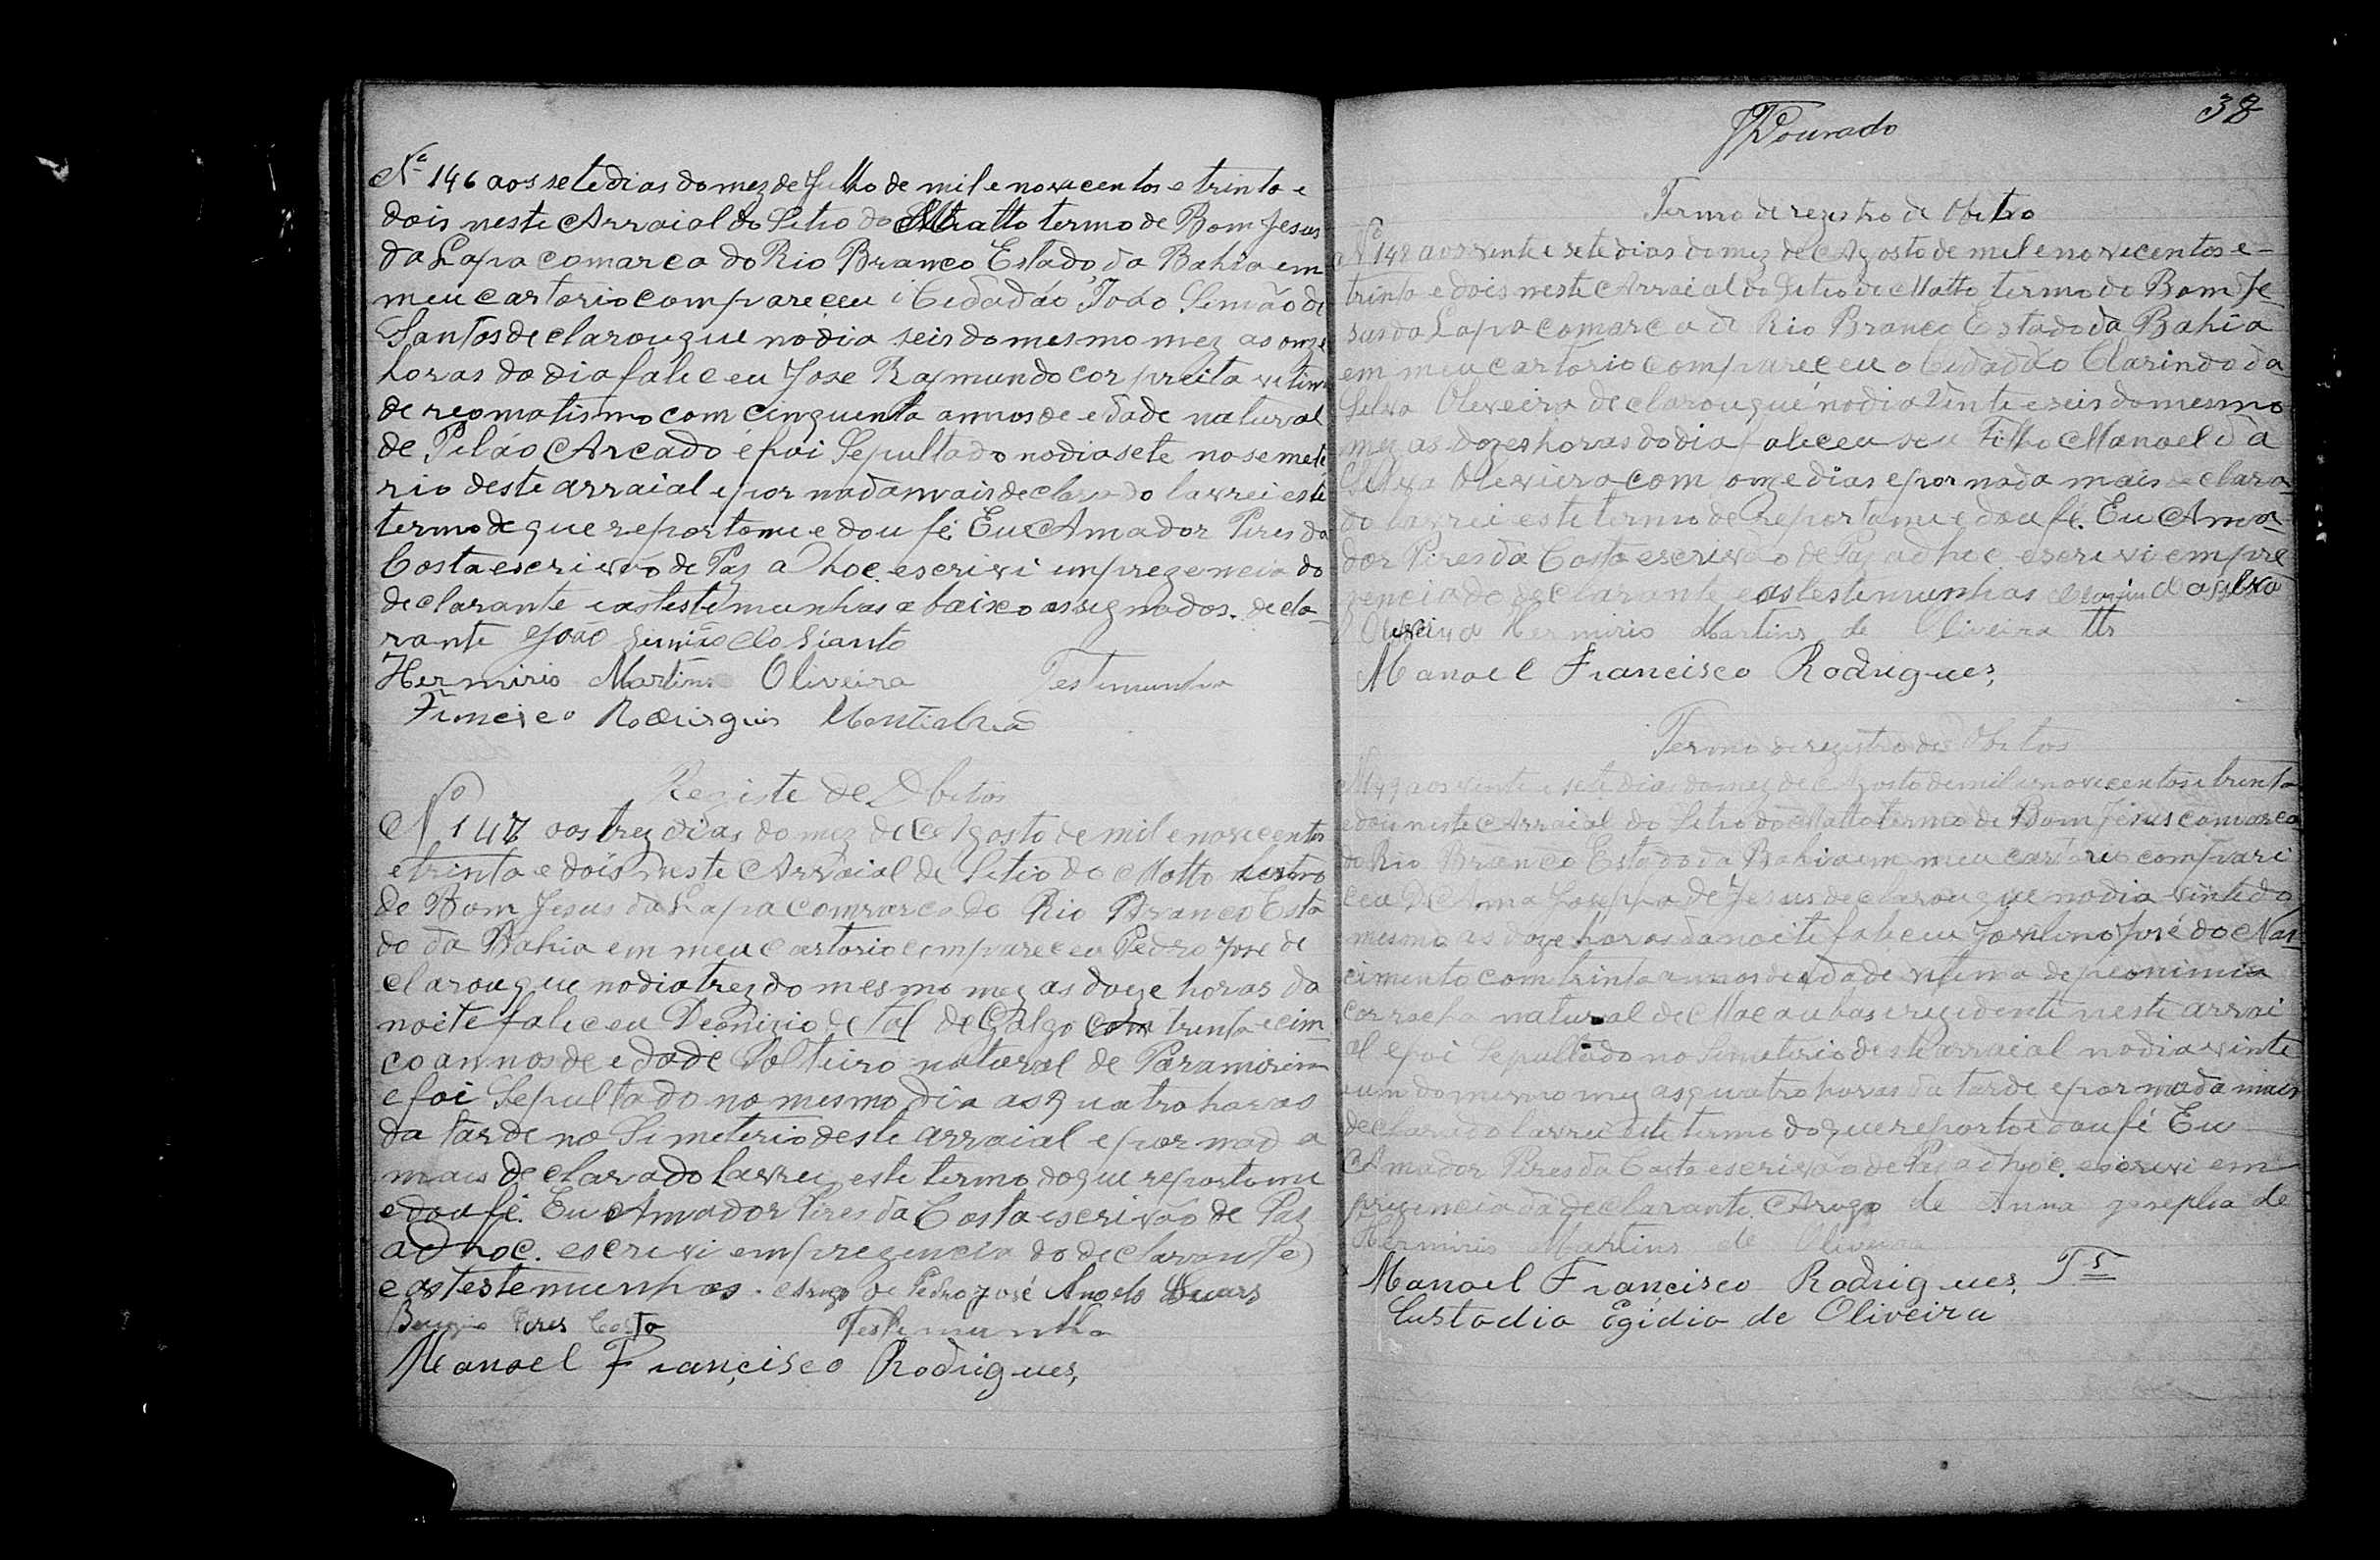 Nº 146 aos sete dias do mez de Julho de mil e novecentos e trinta e
dois neste Arraial do Setio do Matto termo de Bom Jesus
da Lapa comarca do Rio Branco Estado da Bahia em
meu cartorio compareceu o Cidadáo João Simão de
Santos declarou que no dia seis do mesmo mez as onze
horas do dia faleceu Jose Raymundo cor preita vitima
de reomatismo com cinquenta annos de edade natural
de Piláo Arcado e foi Sepultado no dia sete no semete
rio deste arraial e por nada mais declarado lavrei este
termo de que reportome e dou fé Eu Amador Pires da
Costa escrivão de Paz ad hoc. escrivi em prezencia do
declarante e as testemunhas abaixo assignados. decla-
rante João Simião do Sianto
Hermirio Martins Oliveira Testimunha
Francisco Rodrigues
Registe de Obitos
Nº 147 aos trez dias do mez de Agosto de mil e novecentos
e trinta e dois neste Arraial de Setio do Matto termo
de Bom Jesus da Lapa comarca do Rio Branco Esta
do da Bahia em meu cartorio compareceu Pedro Jose de
clarou que no dia trez do mesmo mez as doze horas da
noite faleceu Deonizio de tal de Galgo com trenta e cim
co annos de edade Solteiro natural de Paramirim
e foi Sepultado no mesmo dia as quatro horas
da tarde no Simeterio deste arraial e por nad a
mais declarado lavrei este termo do que reportome
e dou fé. Eu Amador Pires da Costa escrivão de Paz
ad hoc. escrevi em prezencia do declarante
e as testemunhas. Arogo de Pedro José
Pires Costa Testemunha
Manoel Francisco Rodrigues,
38
JDourado
Termo de registro de Obitro
Nº 148 aos vinte e sete dias do mez de Agosto de mil e novecentos e-
trinta e dois neste Arraial do Setio do Matto termo do Bom Je
sus da Lapa comarca do Rio Branco Estado da Bahia
em meu cartorio compareceu o Cidadáo Clarindo da
Silva Oleveira declarou que no dia vinte e seis do mesmo
mez as dozes horas do dia faleceu seu Filho Manoel da
Silva Oleveira com onze dias e por nada mais declara-
do lavrei este termo de reportome e dou fé. Eu Ama-
dor Pires da Costa escrivão de Paz ad hoc escrivi em pre
zencia do declarante e as testemunhas Clarindo da Silva
Oliveira Hermirio Martins de Oliveira tts
Manoel Francisco Rodrigues,
Termo de registro de Obitos
Nº 149 aos vinte e sete dias do mez de Agosto de mil e novecentos e trinta
e dois neste Arraial do Setio do Matto termo de Bom Jesus comarca
do Rio Branco Estado da Bahia em meu cartorio compare
ceu D. Anna Josepha de Jesus declarou que no dia vinte do
mesmo as doze horas da noite faleceu Jovelino José do Nas
cimento com trinta annos de edade vitima de
natural de Macaubas e rezidente neste arrai
al e foi Sepultado no Simeterio deste arraial no dia vinte
e um do mesmo mez as quatro horas da tarde e por nada mais
declarado lavrei este termo do que reporto e dou fé Eu
Amador Pires da Costa escrivão de Paz ad hoc. escrevi em
prezencia da declarante Arogo de Anna Josepha de
Hermirio Martins de Oliveira
Manoel Francisco Rodrigues, Ts
Custodio Egidio de Oliveira